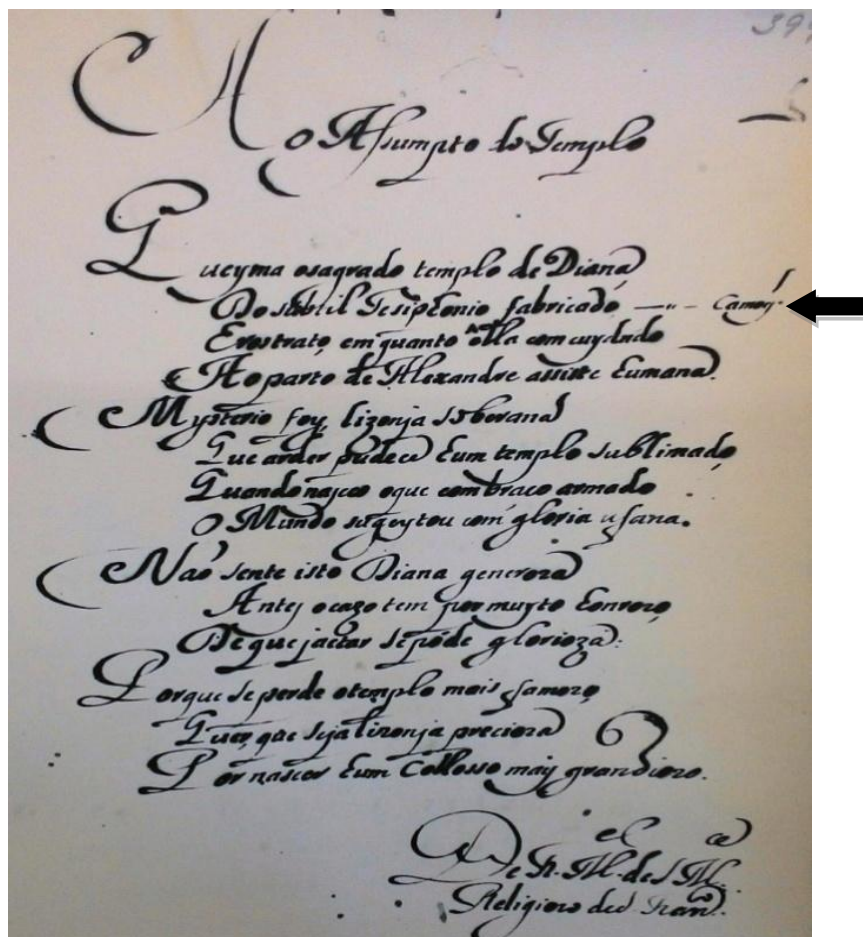 39
Ao Assumpto do Templo
Queyma osagrado templo de Diana
Do subtil Tesiphonio fabricado —"— Camoẽs
Erostrato, em quanto ella com cuydado
Ao parto de Alexandre assiste humana.
Mysterio foy, lizonja soberana
Que arder pudece hum templo sublimado,
Quando nasceo oque com braço armado
O Mundo sugeytou com gloria ufana.
Não sente isto Diana generoza
Antes ocazo tem por muyto honrozo,
De que jactar sepóde glorioza:
Porque se perde otemplo mais famozo,
Quer, que seja lizonja precioza
Por nascer hum Collosso mais grandiozo.
De Fr. M. de S. M.
Religiozo de S. Fran.co